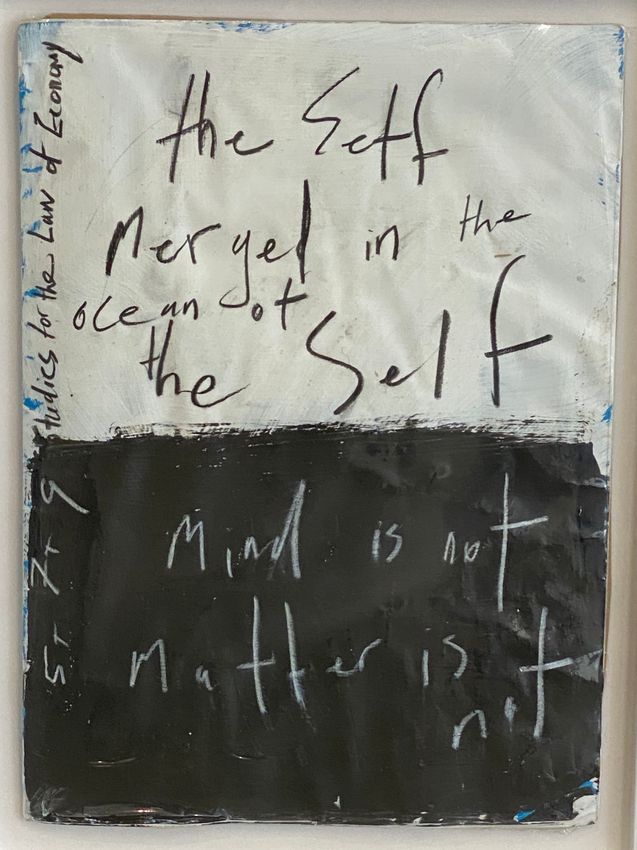 the Self
Merged in the
ocean of
the Self
Mind is not
Matter is
not
Studies for the Law of Economy